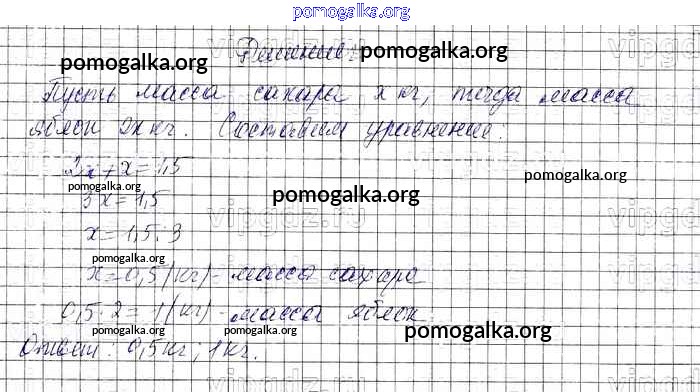 pomogalka.org
Решение: pomogalka.org
pomogalka.org
Пусть масса сахара x кг, тогда масса
яблок 2x кг. Составим уравнение:
2x + x = 1,5
pomogalka.org pomogalka.org
pomogalka.org
3x = 1,5
vipgdz.ru
x = 1,5 : 3
x = 0,5 (кг) - масса сахара
0,5 · 2 = 1 (кг) - масса яблок
pomogalka.org pomogalka.org pomogalka.org
Ответ: 0,5 кг; 1 кг.